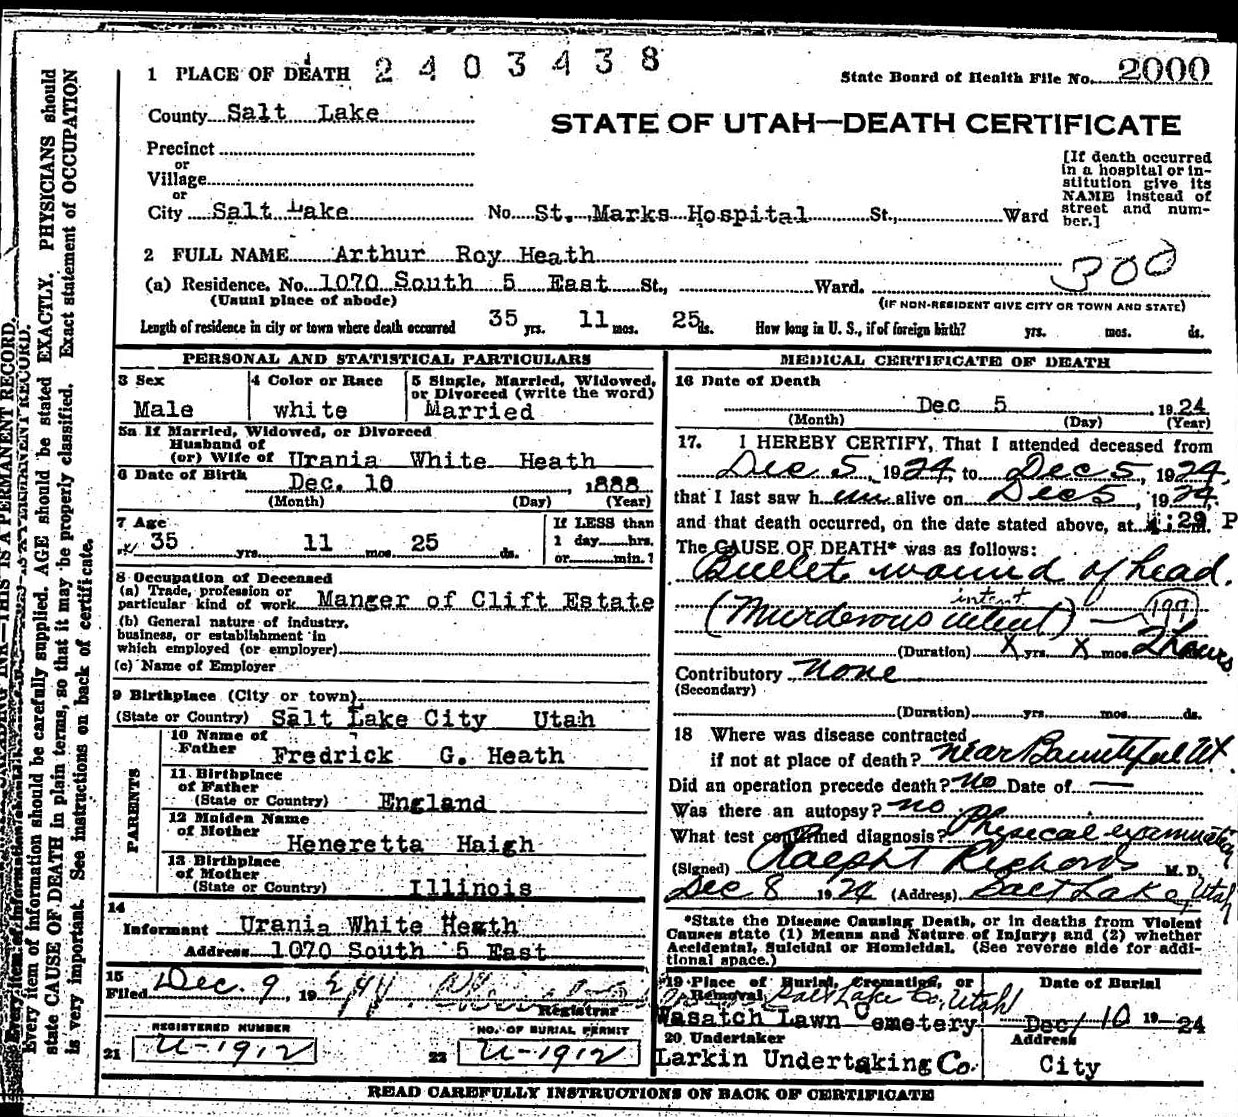 1 PLACE OF DEATH 2403438
State Board of Health File No. 2000
County Salt Lake
STATE OF UTAH—DEATH CERTIFICATE
Precinct
or
Village
or
City Salt Lake No. St. Marks Hospital St., Ward
[If death occurred
in a hospital or in-
stitution give its
NAME instead of
street and num-
ber.]
2 FULL NAME Arthur Roy Heath
300
(a) Residence. No. 1070 South 5 East St., Ward.
(Usual place of abode)
(IF NON-RESIDENT GIVE CITY OR TOWN AND STATE)
Length of residence in city or town where death occurred 35 yrs. 11 mos. 25 ds. How long in U. S., if of foreign birth? yrs. mos. ds.
PERSONAL AND STATISTICAL PARTICULARS
3 Sex
Male
4 Color or Race
white
5 Single, Married, Widowed,
or Divorced (write the word)
Married
5a If Married, Widowed, or Divorced
Husband of
(or) Wife of Urania White Heath
6 Date of Birth
Dec. 10, 1888
(Month) (Day) (Year)
7 Age
35 yrs. 11 mos 25 ds.
If LESS than
1 day hrs.
or min.?
8 Occupation of Deceased
(a) Trade, profession or
particular kind of work Manger of Clift Estate
(b) General nature of industry,
business, or establishment in
which employed (or employer)
(c) Name of Employer
9 Birthplace (City or town)
(State or Country) Salt Lake City Utah
PARENTS
10 Name of
Father Fredrick G. Heath
11 Birthplace
of Father
(State or Country) England
12 Maiden Name
of Mother
Heneretta Haigh
13 Birthplace
of Mother
(State or Country) Illinois
14
Informant Urania White Heath
Address 1070 South 5 East
15
Filed Dec. 9, 192
Registrar
REGISTERED NUMBER
21 U-1912
NO. OF BURIAL PERMIT
22 U-1912
MEDICAL CERTIFICATE OF DEATH
16 Date of Death
Dec 5 1924
(Month) (Day) (Year)
17. I HEREBY CERTIFY, That I attended deceased from
Dec 5, 1924, to Dec 5, 1924,
that I last saw him alive on Dec 5, 1924,
and that death occurred, on the date stated above, at 4:29 P m.
The CAUSE OF DEATH* was as follows:
Bullet wound of head.
intent
(Murderous intent) — 197
(Duration) X yrs. X mos. 2 hours
Contributory none
(Secondary)
(Duration) yrs. mos. ds.
18 Where was disease contracted
if not at place of death? near Bountiful Ut.
Did an operation precede death? no Date of —
Was there an autopsy? no.
What test confirmed diagnosis? Physical examination
(Signed) Ralph T Richards M. D.
Dec 8 1924 (Address) Salt Lake, Utah
*State the Disease Causing Death, or in deaths from Violent
Causes state (1) Means and Nature of Injury; and (2) whether
Accidental, Suicidal or Homicidal. (See reverse side for addi-
tional space.)
19 Place of Burial, Cremation, or
Removal Salt Lake Co, Utah
Wasatch Lawn Cemetery
Date of Burial
Dec 10 1924
20 Undertaker
Larkin Undertaking Co.
Address
City
READ CAREFULLY INSTRUCTIONS ON BACK OF CERTIFICATE
INK—THIS IS A PERMANENT RECORD.
Every item of information should be carefully supplied. AGE should be stated EXACTLY. PHYSICIANS should
state CAUSE OF DEATH in plain terms, so that it may be properly classified. Exact statement of OCCUPATION
is very important. See instructions on back of certificate.